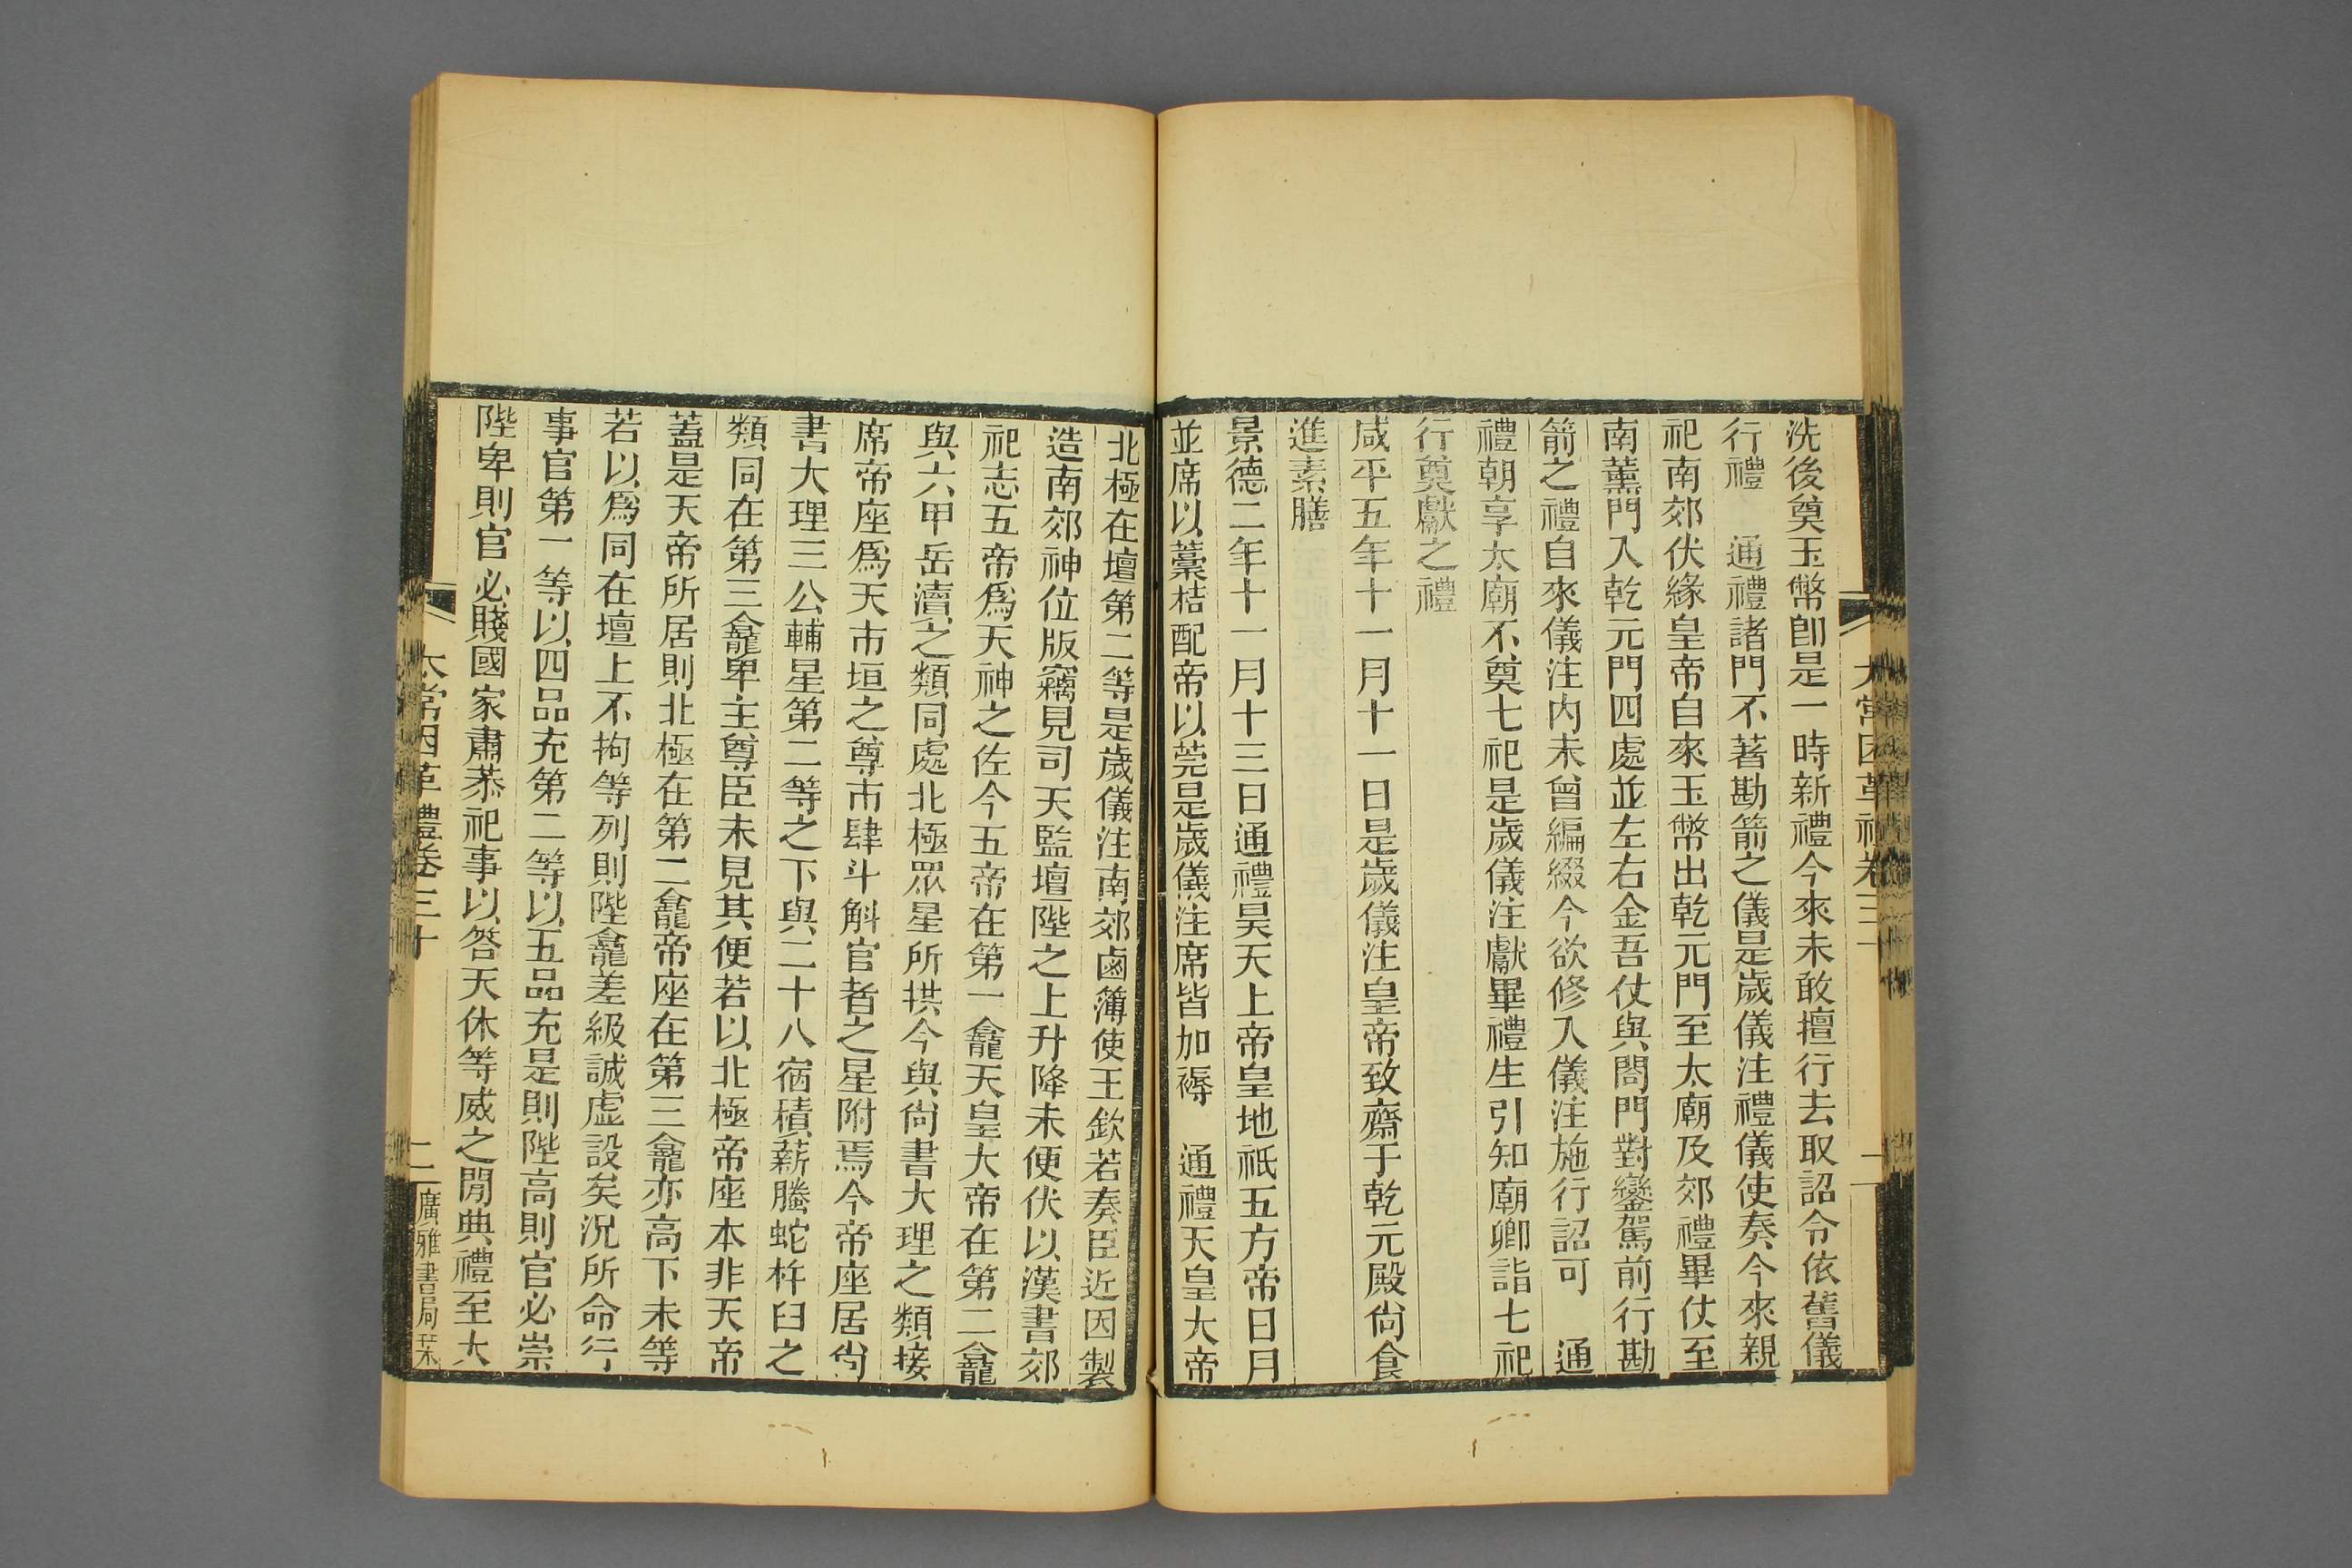 洗後奠玉幣卽是一時新禮今來未敢擅行去取詔令依舊儀
行禮　通禮諸門不著勘箭之儀是歲儀注禮儀使奏今來親
祀南郊伏緣皇帝自來玉幣出乾元門至太廟及郊禮畢仗至
南薰門入乾元門四處並左右金吾仗與閤門對鑾駕前行勘
箭之禮自來儀注內未曾編綴今欲修入儀注施行詔可　通
禮朝享太廟不奠七祀是歲儀注獻畢禮生引知廟卿詣七祀
行奠獻之禮
咸平五年十一月十一日是歲儀注皇帝致齋于乾元殿尙食
進素膳
景德二年十一月十三日通禮昊天上帝皇地祇五方帝日月
並席以藁秸配帝以莞是歲儀注席皆加褥　通禮天皇大帝
北極在壇第二等是歲儀注南郊鹵簿使王欽若奏臣近因製
造南郊神位版竊見司天監壇陛之上升降未便伏以漢書郊
祀志五帝爲天神之佐今五帝在第一龕天皇大帝在第二龕
與六甲岳瀆之類同處北極眾星所拱今與尙書大理之類接
席帝座爲天市垣之尊市肆斗斛官者之星附焉今帝座居尙
書大理三公輔星第二等之下與二十八宿積薪螣蛇杵臼之
類同在第三龕卑主尊臣未見其便若以北極帝座本非天帝
蓋是天帝所居則北極在第二龕帝座在第三龕亦高下未等
若以爲同在壇上不拘等列則陛龕差級誠虛設矣況所命行
事官第一等以四品充第二等以五品充是則陛高則官必崇
陛卑則官必賤國家肅恭祀事以答天休等威之閒典禮至大
太常因革禮卷三十
二
廣雅書局栞